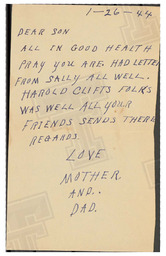 1-26-44
DEAR SON
ALL IN GOOD HEALTH
PRAY YOU ARE. HAD LETTER
FROM SALLY ALL WELL.
HAROLD CLIFTS FOLKS
WAS WELL ALL YOUR
FRIENDS SENDS THERE
REGARDS.
LOVE
MOTHER
AND.
DAD.